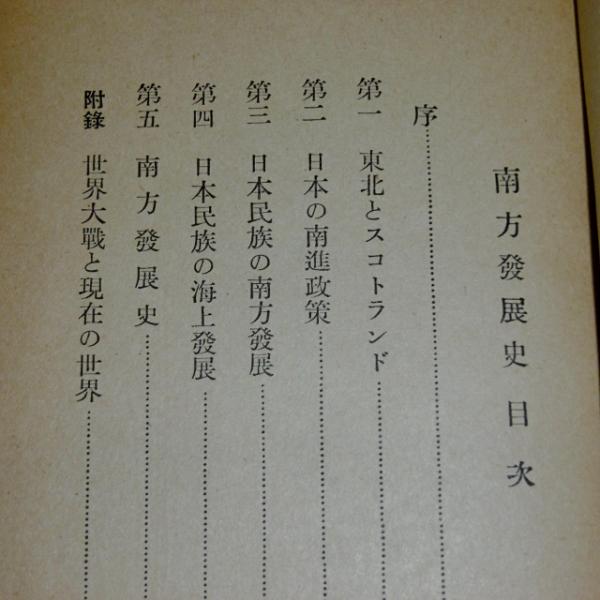 南方發展史目次
序……………………
第一 東北とスコトランド……………………
第二 日本の南進政策……………………
第三 日本民族の南方發展……………………
第四 日本民族の海上發展……………………
第五 南方發展史……………………
附錄 世界大戰と現在の世界……………………